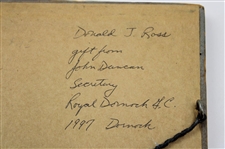 Donald J. Ross
gift from
John Duncan
Secretary
Royal Dornoch G.C.
1997 Dornoch